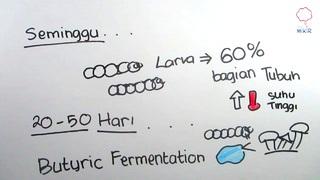 Seminggu . . .
MiKiR
Larva ⇒ 60%
bagian Tubuh
Suhu
Tinggi
20-50 Hari . . .
Butyric Fermentation